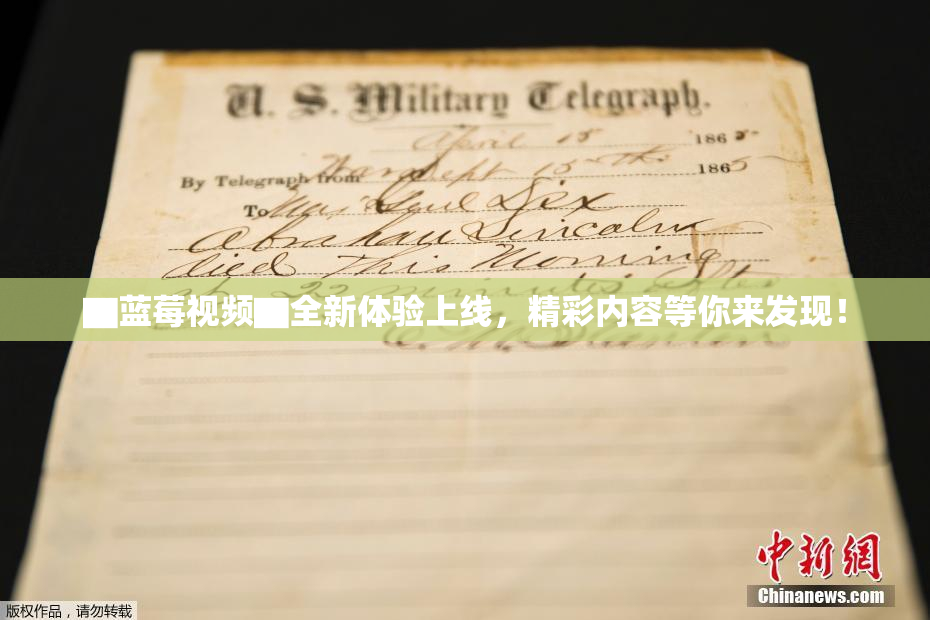 U. S. Military Telegraph.
April 15 1865
By Telegraph from War Dept 15th 1865
To Maj Genl Dix
Abraham Lincoln
died This Morning
22 minutes after
▇蓝莓视频▇全新体验上线，精彩内容等你来发现！
E. M. Stanton
中新网
Chinanews.com
版权作品，请勿转载